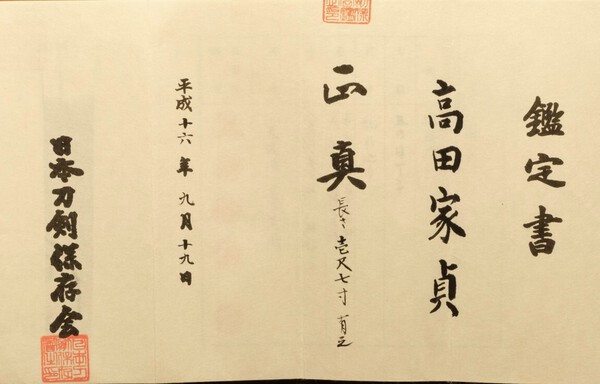 鑑定書
高田家貞
正真
長さ壱尺七寸有之
平成十六年九月十九日
日本刀剣保存会